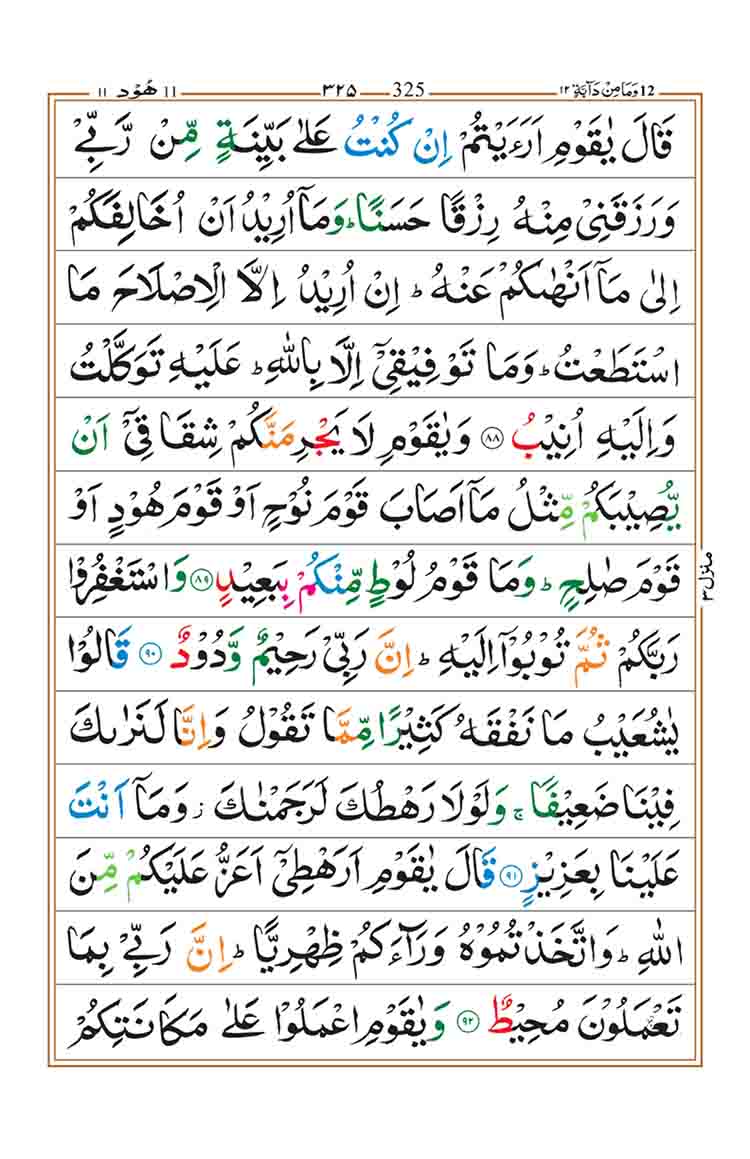 12 وَمَا مِنْ دَآبَّةٍ ۱۲ 325 ۳۲۵ 11 هُوْد ۱۱
قَالَ يٰقَوْمِ اَرَءَيْتُمْ اِنْ كُنْتُ عَلٰى بَيِّنَةٍ مِّنْ رَّبِّيْ
وَرَزَقَنِيْ مِنْهُ رِزْقًا حَسَنًا ؕ وَمَاۤ اُرِيْدُ اَنْ اُخَالِفَكُمْ
اِلٰى مَاۤ اَنْهٰىكُمْ عَنْهُ ؕ اِنْ اُرِيْدُ اِلَّا الْاِصْلَاحَ مَا
اسْتَطَعْتُ ؕ وَمَا تَوْفِيْقِيْۤ اِلَّا بِاللّٰهِ ؕ عَلَيْهِ تَوَكَّلْتُ
وَاِلَيْهِ اُنِيْبُ ۸۸ وَيٰقَوْمِ لَا يَجْرِمَنَّكُمْ شِقَاقِيْۤ اَنْ
يُّصِيْبَكُمْ مِّثْلُ مَاۤ اَصَابَ قَوْمَ نُوْحٍ اَوْ قَوْمَ هُوْدٍ اَوْ
قَوْمَ صٰلِحٍ ؕ وَمَا قَوْمُ لُوْطٍ مِّنْكُمْ بِبَعِيْدٍ ۸۹ وَاسْتَغْفِرُوْا
رَبَّكُمْ ثُمَّ تُوْبُوْۤا اِلَيْهِ ؕ اِنَّ رَبِّيْ رَحِيْمٌ وَّدُوْدٌ ۹۰ قَالُوْا
يٰشُعَيْبُ مَا نَفْقَهُ كَثِيْرًا مِّمَّا تَقُوْلُ وَاِنَّا لَنَرٰىكَ
فِيْنَا ضَعِيْفًا ۚ وَلَوْلَا رَهْطُكَ لَرَجَمْنٰكَ ؗ وَمَاۤ اَنْتَ
عَلَيْنَا بِعَزِيْزٍ ۹۱ قَالَ يٰقَوْمِ اَرَهْطِيْۤ اَعَزُّ عَلَيْكُمْ مِّنَ
اللّٰهِ ؕ وَاتَّخَذْتُمُوْهُ وَرَآءَكُمْ ظِهْرِيًّا ؕ اِنَّ رَبِّيْ بِمَا
تَعْمَلُوْنَ مُحِيْطٌ ۹۲ وَيٰقَوْمِ اعْمَلُوْا عَلٰى مَكَانَتِكُمْ
منزل ۳